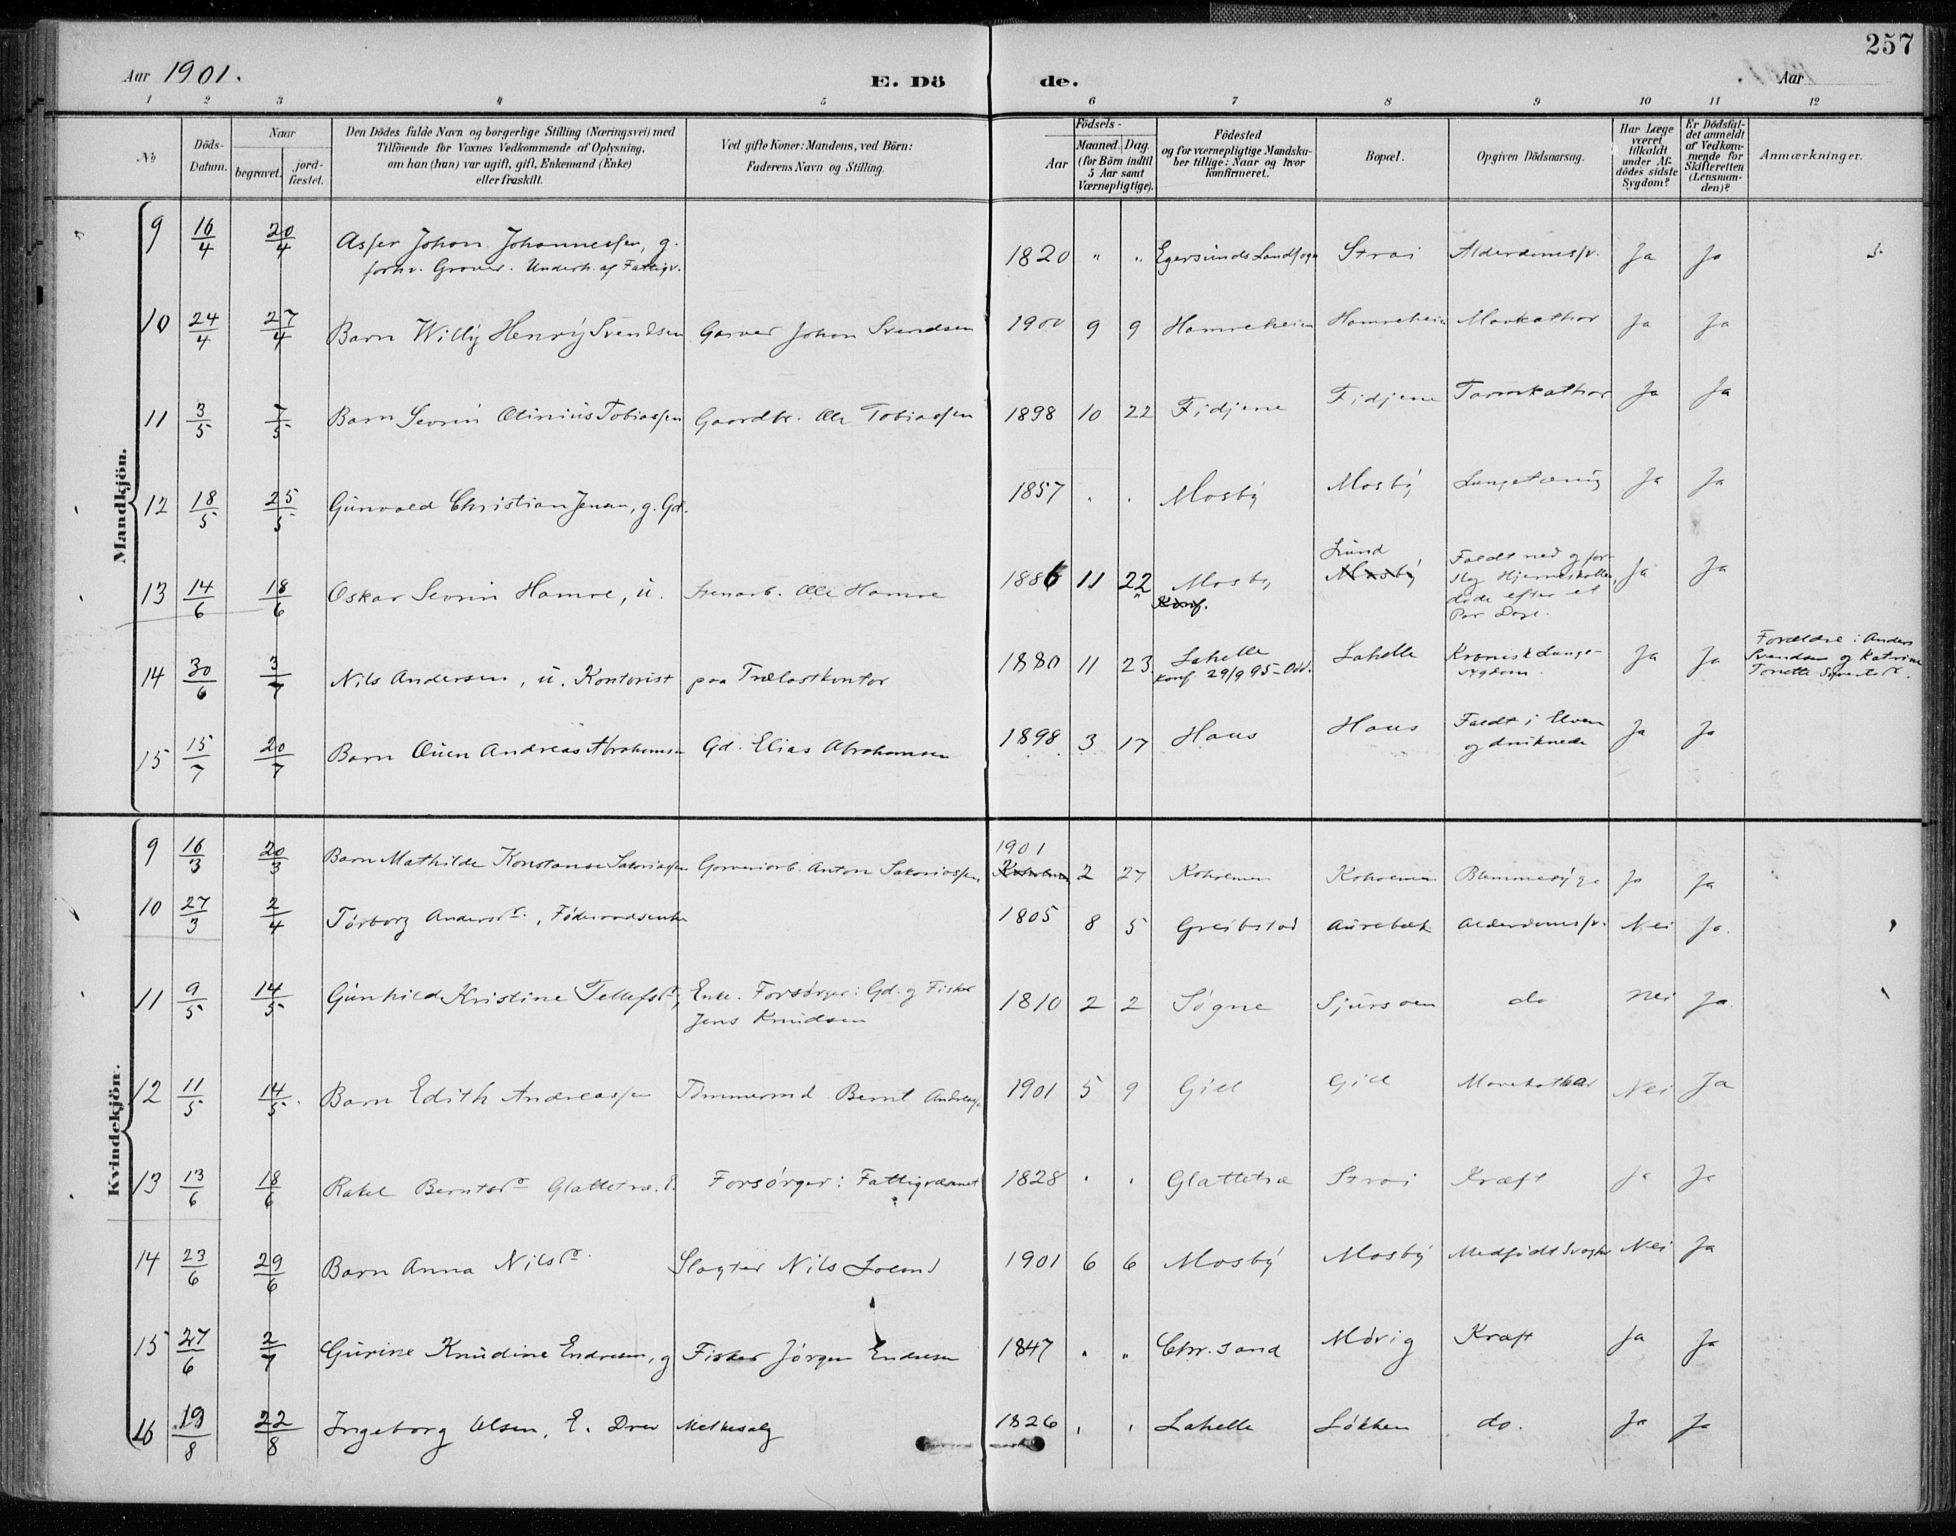 257
Aar 1901. E. Dö de. Aar
1 2 3 4 5 6 7 8 9 10 11 12
No
Döds-Datum.
Naar
begravet.
jord-fæstet.
Den Dödes fulde Navn og borgerlige Stilling (Næringsvei) med
Tilföiende for Voxnes Vedkommende af Oplysning,
om han (hun) var ugift, gift, Enkemand (Enke)
eller fraskilt.
Ved gifte Koner: Mandens, ved Börn:
Faderens Navn og Stilling.
Födsels-
Aar
Maaned. Dag.
(for Börn indtil
5 Aar samt
Værnepligtige).
Födested
og for værnepligtige Mandska-
ber tillige: Naar og hvor
konfirmeret.
Bopæl.
Opgiven Dödsaarsag.
Har Læge
været
tilkaldt
under Af-
dödes sidste
Sygdom?
Er Dödsfal-
det anmeldt
af Vedkom-
mende for
Skifteretten
(Lensman-
den)?
Anmærkninger.
Mandkjön.
9 16/4 20/4 Asser Johan Johannessen, g. 1820 " " Egersunds Landsogn Strai Alderdomssv. Ja Ja
forhv. Garver. Underh. af Fattigv.
10 24/4 27/4 Barn Willy Henry Svendsen Garver Johan Svendsen 1900 9 9 Hamreheien Hamreheien Mavekathar Ja Ja
11 3/5 7/5 Barn Sevrin Olinius Tobiassen Gaardbr. Ole Tobiassen 1898 10 22 Fidjene Fidjene Tarmkathar Ja Ja
12 18/5 25/5 Gunvald Christian Jensen, g. Gd. 1857 " " Mosby Mosby Lungetæring Ja Ja
13 14/6 18/6 Oskar Sevrin Hamre, u. Stenarb. Ole Hamre 1886 11 22 Mosby Konf. Lund Mosby Faldt ned og for-
slog Hjerneskallen, Ja Ja
døde efter et
Par Dage.
14 30/6 3/7 Nils Andersen, u. Kontorist paa Trælastkontor 1880 11 23 Lahelle Lahelle Kronisk Lunge- Ja Ja Forældre: Anders
konf 29/9 95 - Odd. sygdom. Svendsen og Katrine
Tonette
15 15/7 20/7 Barn Ouen Andreas Abrahamsen Gd. Elias Abrahamsen 1898 3 17 Haus Haus Faldt i Elven Ja Ja
og druknede
Kvindekjön.
9 16/3 20/3 Barn Mathilde Konstanse Sakariassen Garveriarb. Anton Sakariassen 1901 Koholmen 2 27 Koholmen Koholmen Ja Ja
10 27/3 2/4 Tørborg Andersdr., Føderaadsenke 1805 8 5 Greibstad Aurebæk Alderdomssv. Nei Ja.
11 9/5 14/5 Gunhild Kristine Tellefsdr, Enke. Forsørger: Gd. og Fisker 1810 2 2 Søgne Sjursøen do Nei Ja.
Jens Knudsen
12 11/5 14/5. Barn Edith Andreassen Tømmermd Bernt Andreassen 1901 5 9 Gill Gill Mavekathar Nei Ja
13 13/6 18/6 Rakel Berntsdr Glattetræ. E. Forsørger: Fattigvæsenet 1828 " " Glattetræ Strai Kræft Ja Ja
14 23/6 29/6 Barn Anna Nilsdr. Slagter Nils 1901 6 6 Mosby Mosby Medfødt Svaghed Nei Ja
15 27/6 2/7 Gurine Knudine Endresen, g Fisker Jørgen Endresen 1847 " " Chr.sand Møvig Kræft Ja Ja
16 19/8 22/8 Ingeborg Olsen, E. Drev Melkesalg 1826 " " Lahelle Løkken do. Ja Ja